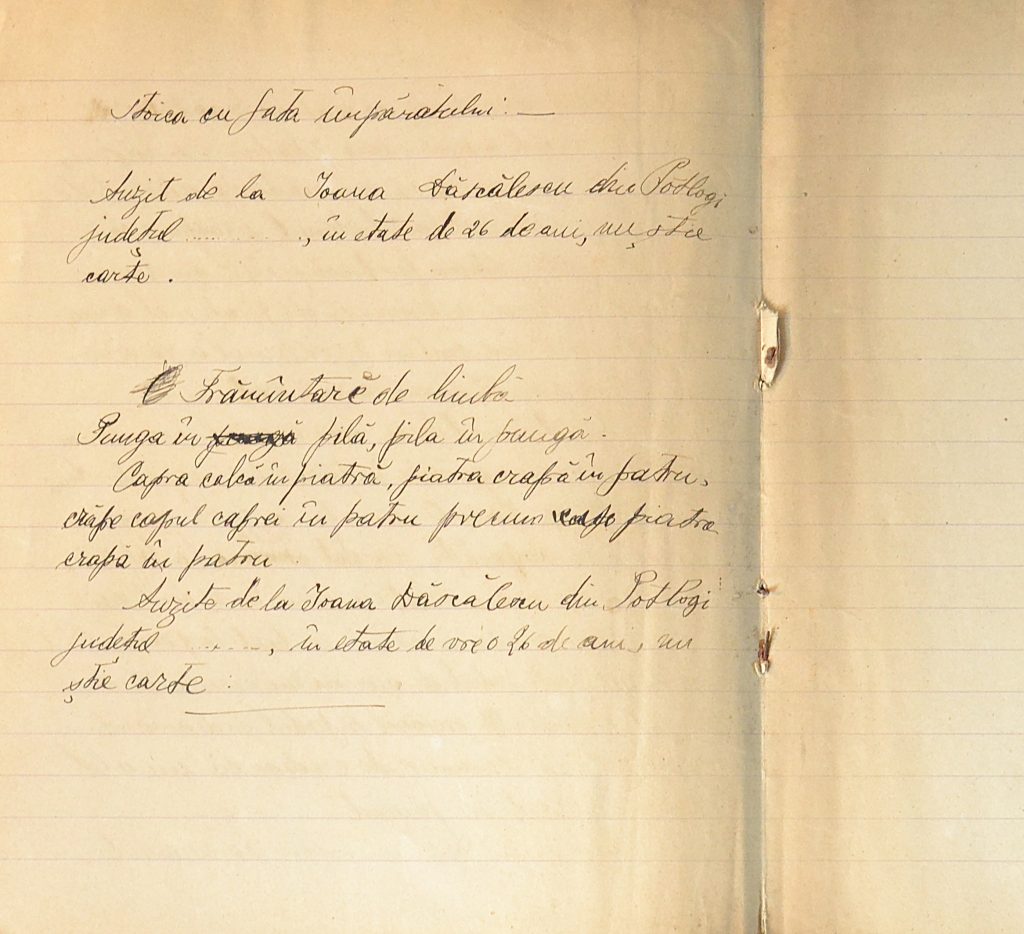 Stoica cu fata împăratului. —
Auzit de la Ioana Dăscălescu din Potlogi
județul ..........., în etate de 26 de ani, nu știe
carte.
Frămîntare de limbă
Punga în pungă pilă, pila în pungă.
Capra calcă în piatră, piatra crapă în patru,
crăpe capul caprei în patru precum piatra
crapă în patru
Auzite de la Ioana Dăscălescu din Potlogi
județul ........, în etate de vreo 26 de ani, nu
știe carte.